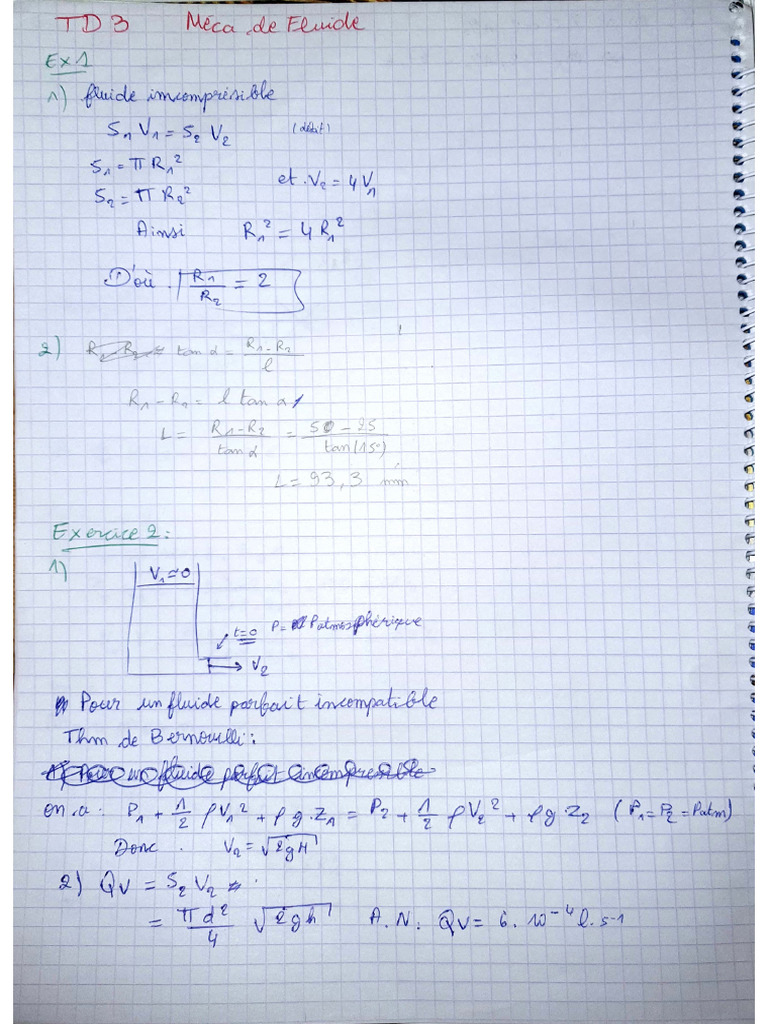 TD 3 Méca de Fluide
Ex 1
1) fluide imcompresible
S₁ V₁ = S₂ V₂ (débit)
S₁ = π R₁²
et V₂ = 4 V₁
S₂ = π R₂²
Ainsi R₁² = 4 R₁²
D'où R₁/R₂ = 2
2) tan α = (R₁ - R₂)/l
R₁ - R₁ = l tan α
L = (R₁ - R₂)/tan α = (50 - 25)/tan(15°)
L = 93,3 mm
Exercice 2:
1)
V₁ ≈ 0
t=0 P = Patmosphérique
V₂
Pour un fluide parfait incompatible
Thm de Bernouilli:
1) Pour un fluide parfait incompresible
on a: P₁ + 1/2 ρ V₁² + ρ g. Z₁ = P₂ + 1/2 ρ V₂² + ρ g. Z₂ (P₁ = P₂ = Patm)
Donc V₂ = √2gH
2) Qv = S₂ V₂
= πd²/4 √2gh A.N: Qv = 6. 10⁻⁴ l. s-1